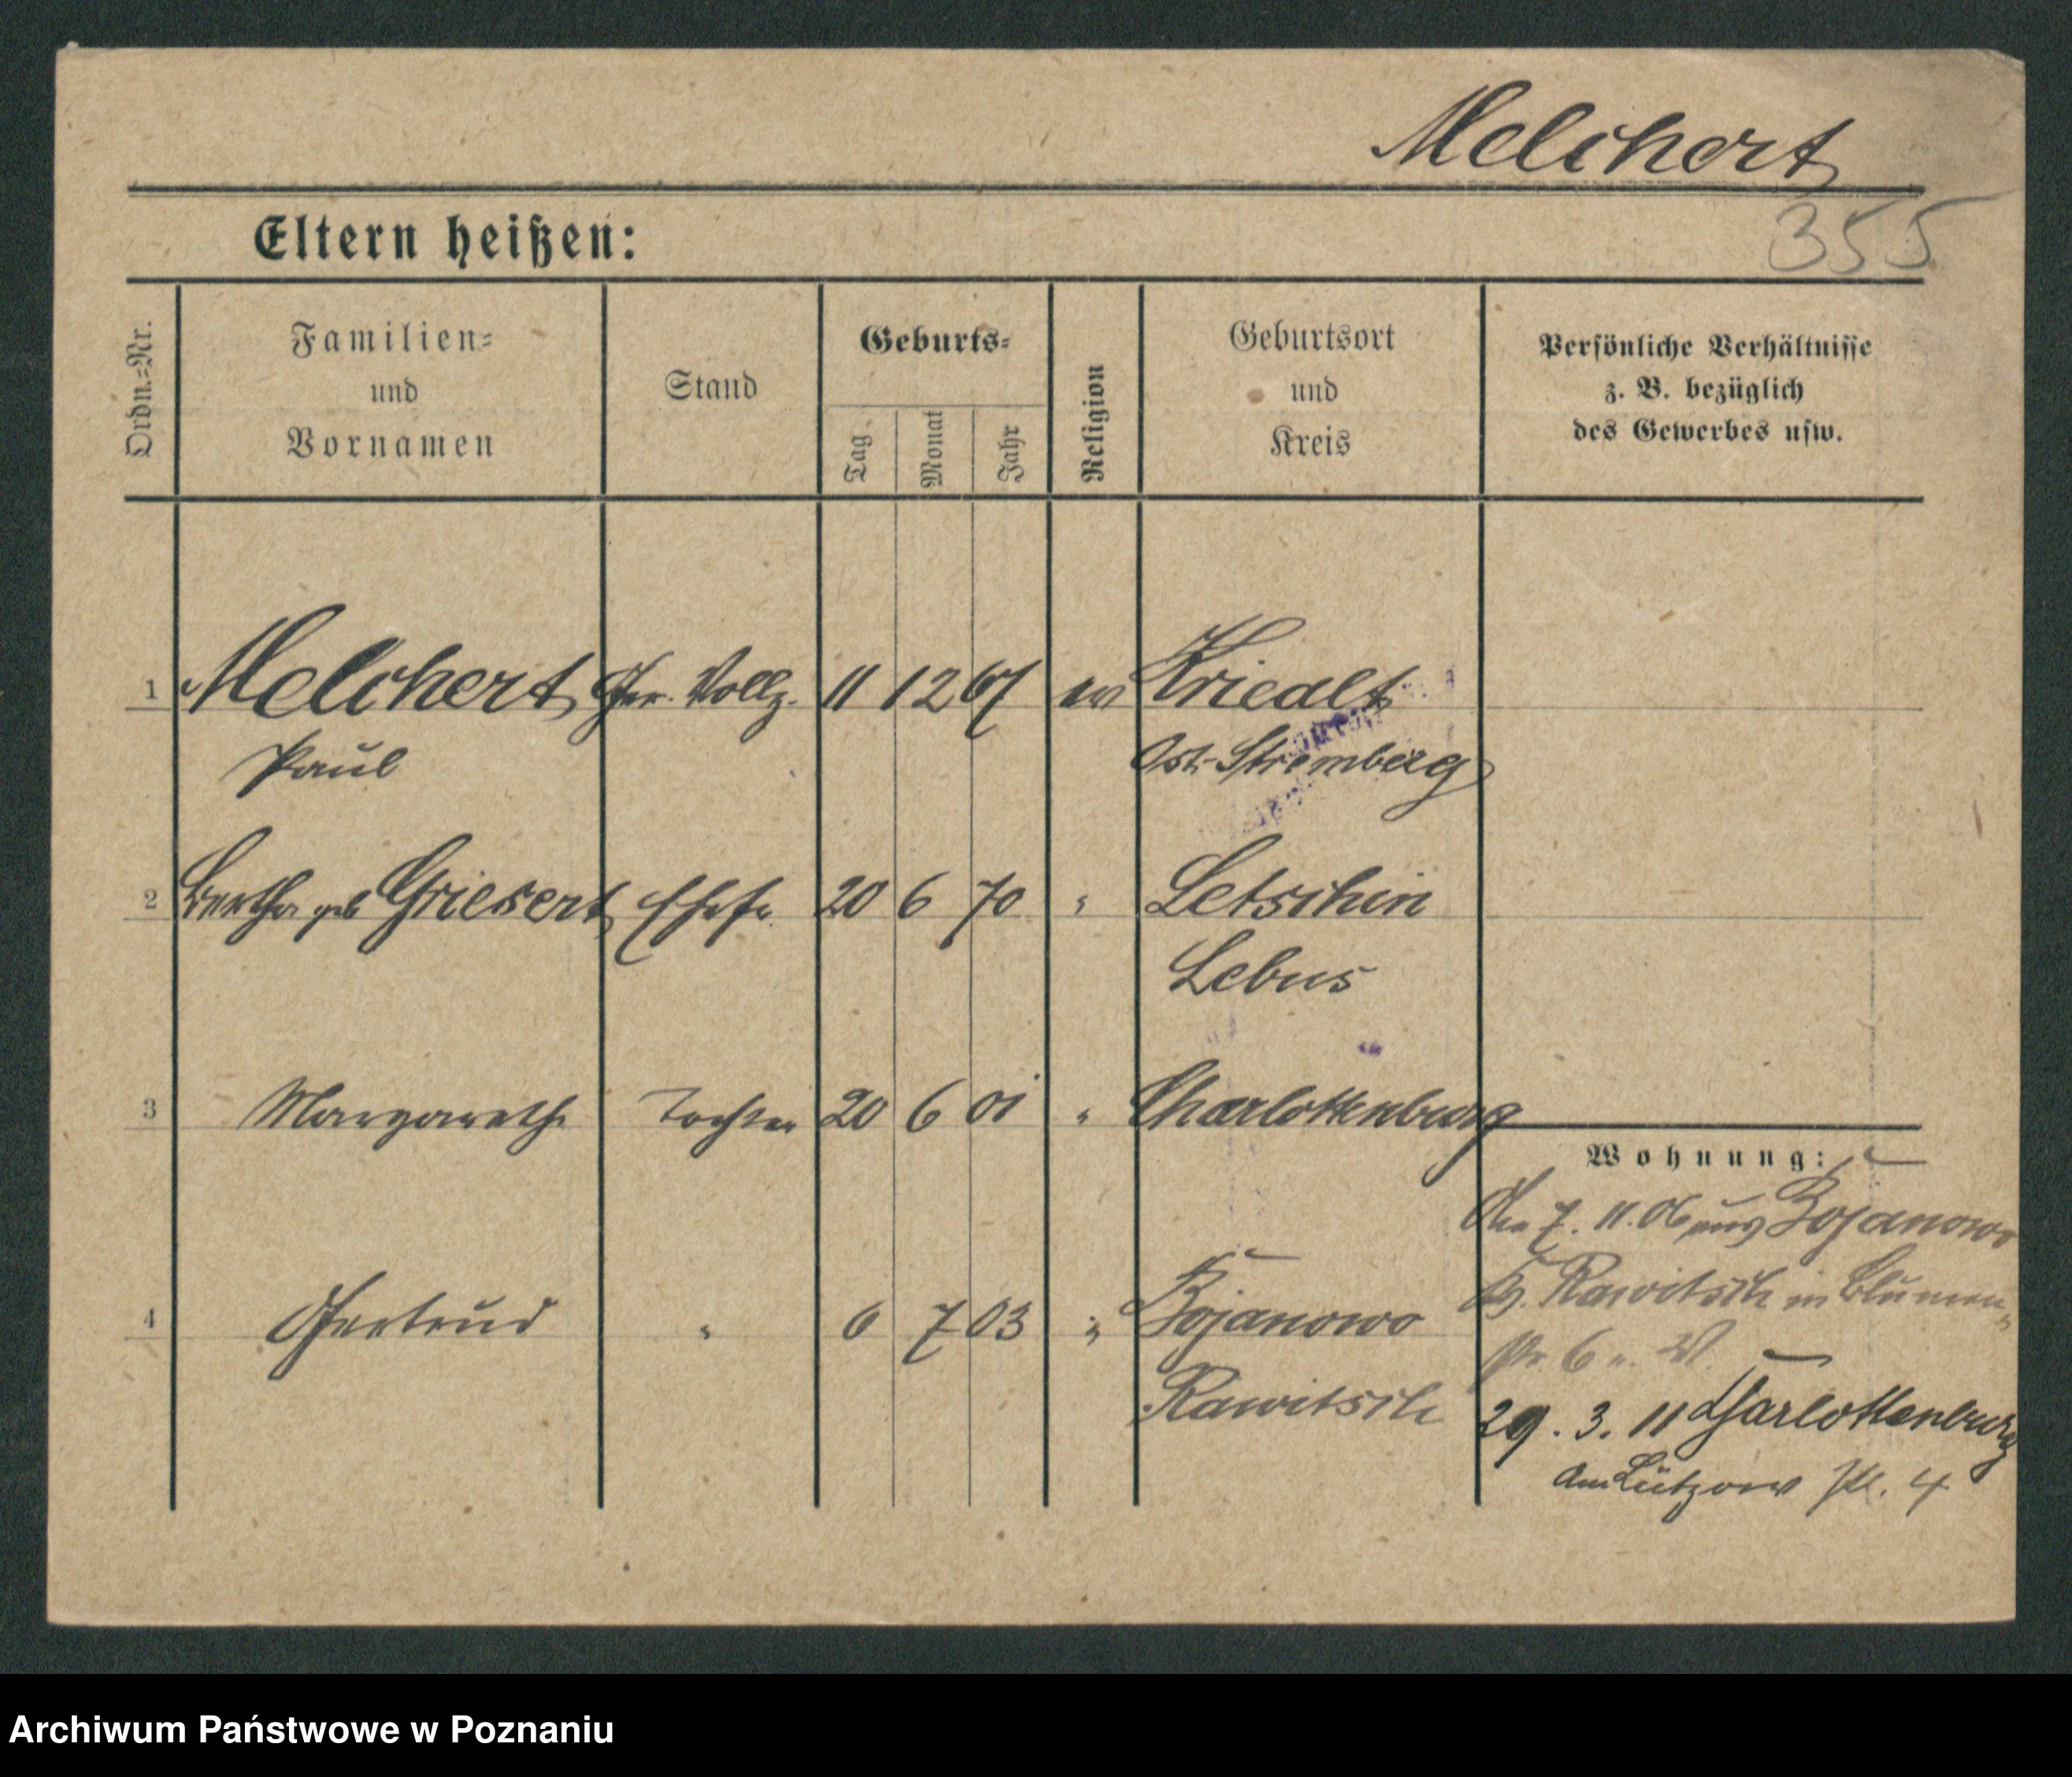 Melchert
355
Eltern heißen:
Ordn.-Nr.
Familien-
und
Vornamen
Stand
Geburts-
Tag
Monat
Jahr
Religion
Geburtsort
und
Kreis
Persönliche Verhältnisse
z. B. bezüglich
des Gewerbes usw.
1 Melchert Ger. Vollz. 11 12 67 ev Kriedlt
Paul Ost-Stremberg
2 Bertha geb Griesert Ehefr. 20 6 70 " Letschin
Lebus
3 Margarethe Tochter 20 6 01 " Charlottenburg
Wohnung:
7. 11. 06 aus Bojanowo
Kr. Rawitsch in Blumen-
str. 6 u. W.
4 Gertrud " 6 7 03 " Bojanowo
Rawitsch
29. 3. 11 Charlottenburg
Am Lützow Pl. 4
Archiwum Państwowe w Poznaniu